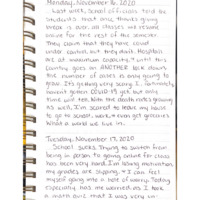 Monday, November 16, 2020
Last week, school officials told the
students that once thanks giving
break is over, all classes will be online
for the rest of the semester.
They claim that they have covid
under control, but they don't. Hospitals
are at maximum capacity, & until this
country goes on ANOTHER lock down
the number of cases is only going to
grow. It's getting very scary. I fortunately
haven't gotten COVID-19 yet but only
time will tell. With the death rate growing
as well, I'm scared to leave my house
to go to school, work, or even get groceries.
What a world we live in.
Tuesday, November 17, 2020
School sucks. Trying to switch from
being in person to going online for class
has been very hard. I'm losing motivation,
my grades are slipping, & I can feel
myself going into a hole of worry. Today
especially has me worried as I took
a math quiz that I was very un-